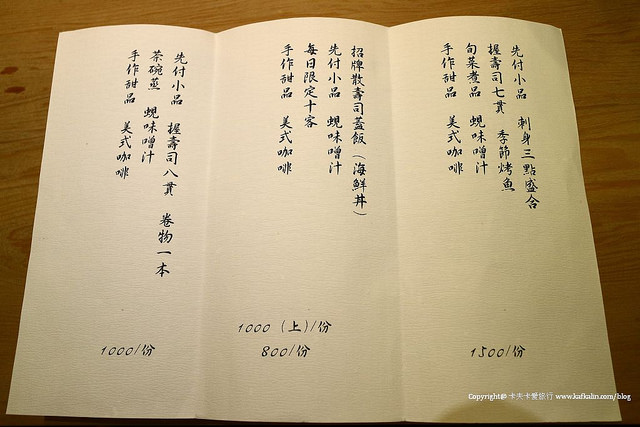 先付小品 刺身三點盛合
握壽司七貫 季節烤魚
旬菜煮品 蜆味噌汁
手作甜品 美式咖啡
1500/份
招牌散壽司蓋飯(海鮮丼)
先付小品 蜆味噌汁
每日限定十客
手作甜品 美式咖啡
1000 (上)/份
800/份
先付小品 握壽司八貫 卷物一本
茶碗蒸 蜆味噌汁
手作甜品 美式咖啡
1000/份
Copyright© 卡夫卡愛旅行 www.kafkalin.com/blog